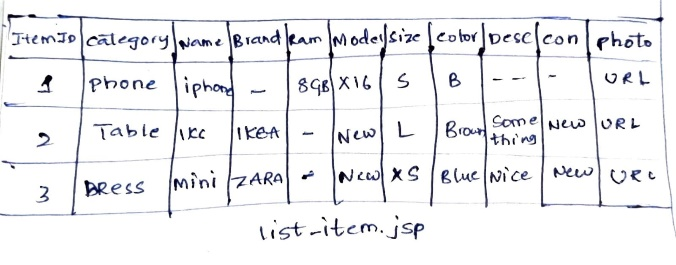 ItemID Category Name Brand Ram Model Size Color Desc Con Photo
1 Phone iphone – 8GB X16 S B -- - URL
2 Table IKC IKEA – New L Brown Some thing New URL
3 DRess Mini ZARA - New XS Blue Nice New URL
list-item.jsp